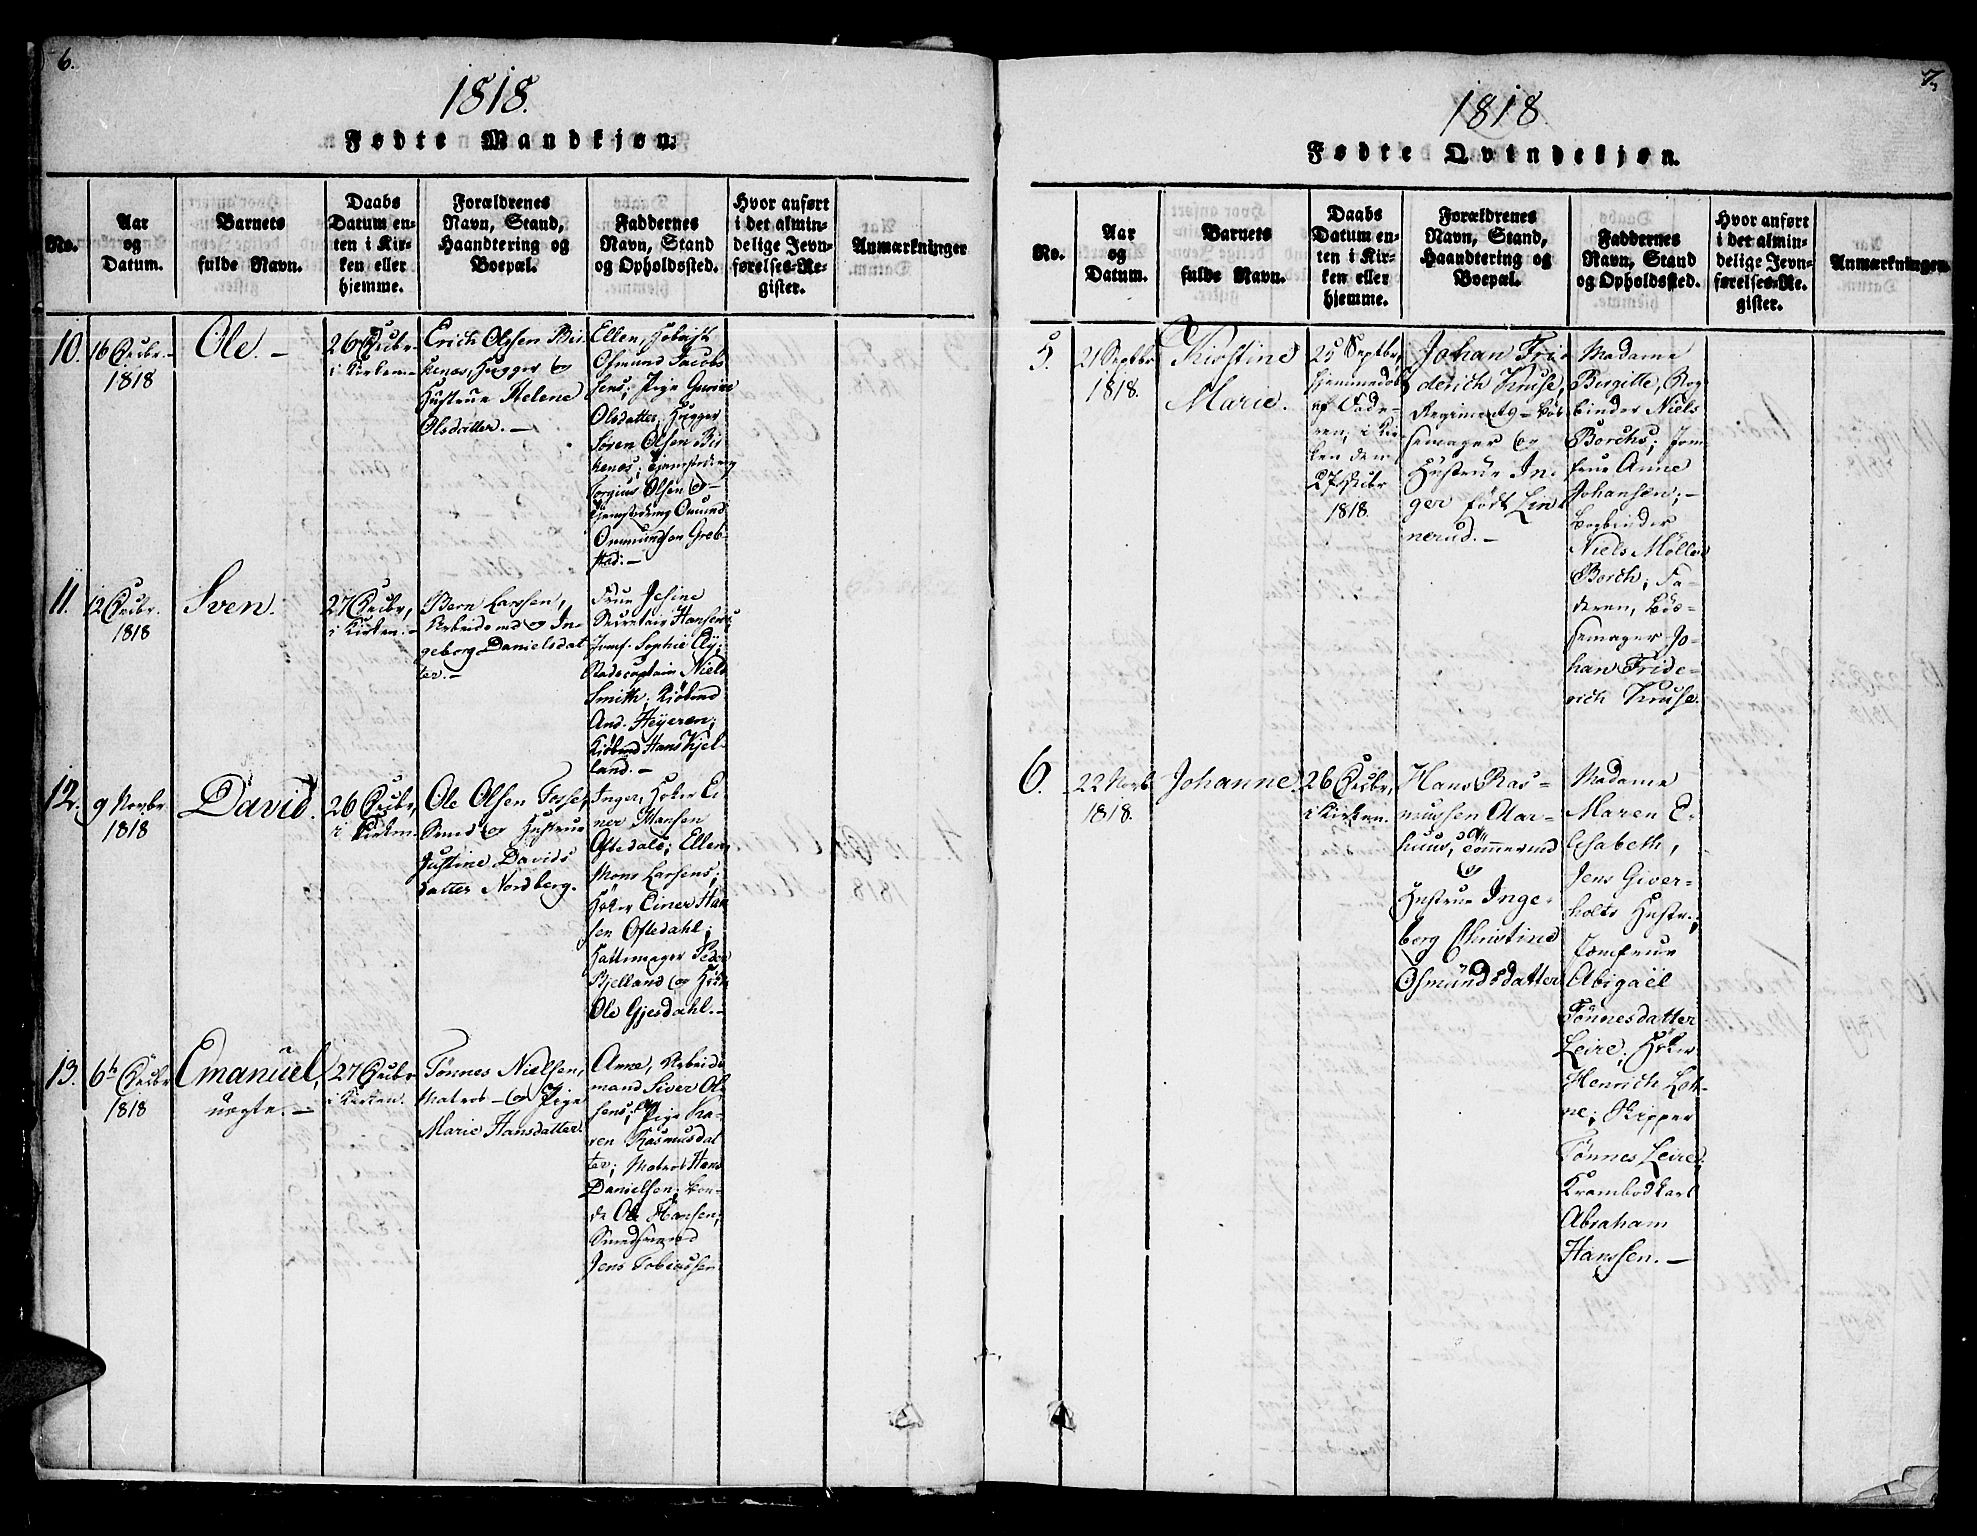 6.
1818.
Fødte Mandkjøn.
No.
Aar
og
Datum.
Barnets
fulde Navn.
Daabs
Datum en-
ten i Kir-
ken eller
hjemme.
Forældrenes
Navn, Stand,
Haandtering og
Boepæl.
Faddernes
Navn, Stand
og Opholdssted.
Hvor anført
i det almin-
delige Jevn-
førelses-Re-
gister.
Anmærkninger
10.
16 Decbr.
1818
Ole. –
26 Decbr.
i Kirken
Erich Olssen Bir-
kenes, Hugger og
Hustrue Helene
Olsdatter. –
Ellen,
Osmund Jacobs
sens; Pige Gunild
Olsdatter, Hugger
Søren Olsen Bir-
kenes;
Torgius Olsen og
Omund
Ommundsen Greb-
stad. –
11.
12 Decbr.
1818
Sven.
27 Decbr,
i Kirken. –
Bern Larssen,
Arbeidsmd og In-
geborg Danielsdat
ter. –
Frue Jesine
Secretair Hansens;
Jomf. Sophie Ely;
Stadscaptain Niels
Smith, Kiøbmd
And. Heyeren;
Kiøbmd Hans Kjel-
land. –
12.
9 Novbr.
1818
David.
26 Decbr,
i Kirken
Ole Olsen Fosse,
Smed og Hustrue
Justine Davids
datter Nordberg.
Inger, Høker Ei
ner Hansen
Oftedals; Ellen,
Mons Larsens;
Høker Einer Han
sen Oftedahl;
Hattemager Peder
Bjelland og Høker
Ole Gjesdahl. –
13.
6t Decbr
1818
Emanuel,
uægte. –
27 Decbr
i Kirken.
Tønnes Nielsen,
Matros – og Pige
Marie Hansdatter.
Anne, Arbeids
mand Siver Ol
sens; Pige Ka-
ren Rasmusdat
ter; Matros Hans
Danielsen; Bon-
de Ole Hansen;
Smedsvend
Jens Tobiassen
7.
1818
Fødte Qvindekjøn.
No.
Aar
og
Datum.
Barnets
fulde Navn.
Daabs
Datum en-
ten i Kir-
ken eller
hjemme.
Forældrenes
Navn, Stand,
Haandtering og
Boepæl.
Faddernes
Navn, Stand
og Opholdssted.
Hvor anført
i det almin-
delige Jevn-
førelses-Re-
gister.
Anmærkninger.
5.
21 Septbr
1818.
Kirstine
Marie.
25 Septbr,
hjemmedøb
af Fade-
ren; i Kir-
ken den
27 Decbr
1818.
Johan Fri-
derich Kruse,
Regiments – Bøs
semager og
Hustrue In-
ger født Lin
nerud. –
Madame
Birgitte, Bog-
binder Niels
Borchs; Jom-
frue Anne
Johansen; –
Bogbinder
Niels Møller
Borch; Fa-
deren, Bøs-
semager Jo-
han Fride-
rich Kruse.
6.
22 Novb
1818.
Johanne.
26 Decbr,
i Kirken.
Hans Ras-
mussen Aar-
huus, Tømmermd
og
Hustrue Inge-
borg Christine
Osmundsdatter
Madame
Maren E-
lisabeth,
Jens Giver-
holts Hustr.;
Jomfrue
Abigaël
Tönnesdatter
Leire; Høker
Henrich Leth-
ne; Skipper
Tønnes Leire;
Krambodkarl
Abraham
Hanssen. –